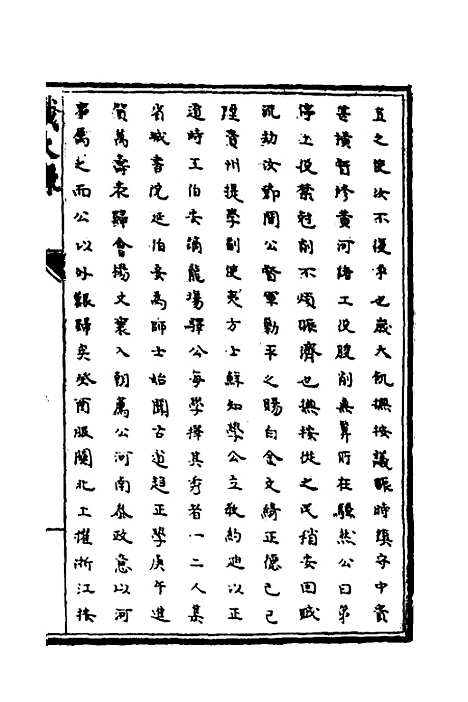 直之使汝不復爭也歲大飢撫按議賑時鎮守中貴
等橫暫修黃河諸工役朘削無算所在騷然公曰第
停工役禁尅削不煩賑濟也撫按從之民稍安回賊
沉劫汝鄧間公督軍勦平之賜白金文綺正德己巳
陞貴州提學副使夷方士鮮知學公立教約迪以正
道時王伯安謫龍場驛公每學擇其秀者一二人集
省城書院延伯安為師士始聞古道趨正學庚午進
賀萬壽表歸會楊文襄入朝薦公河南叅政意以河
事屬之而公以外艱歸矣癸酉服闋北上擢浙江按